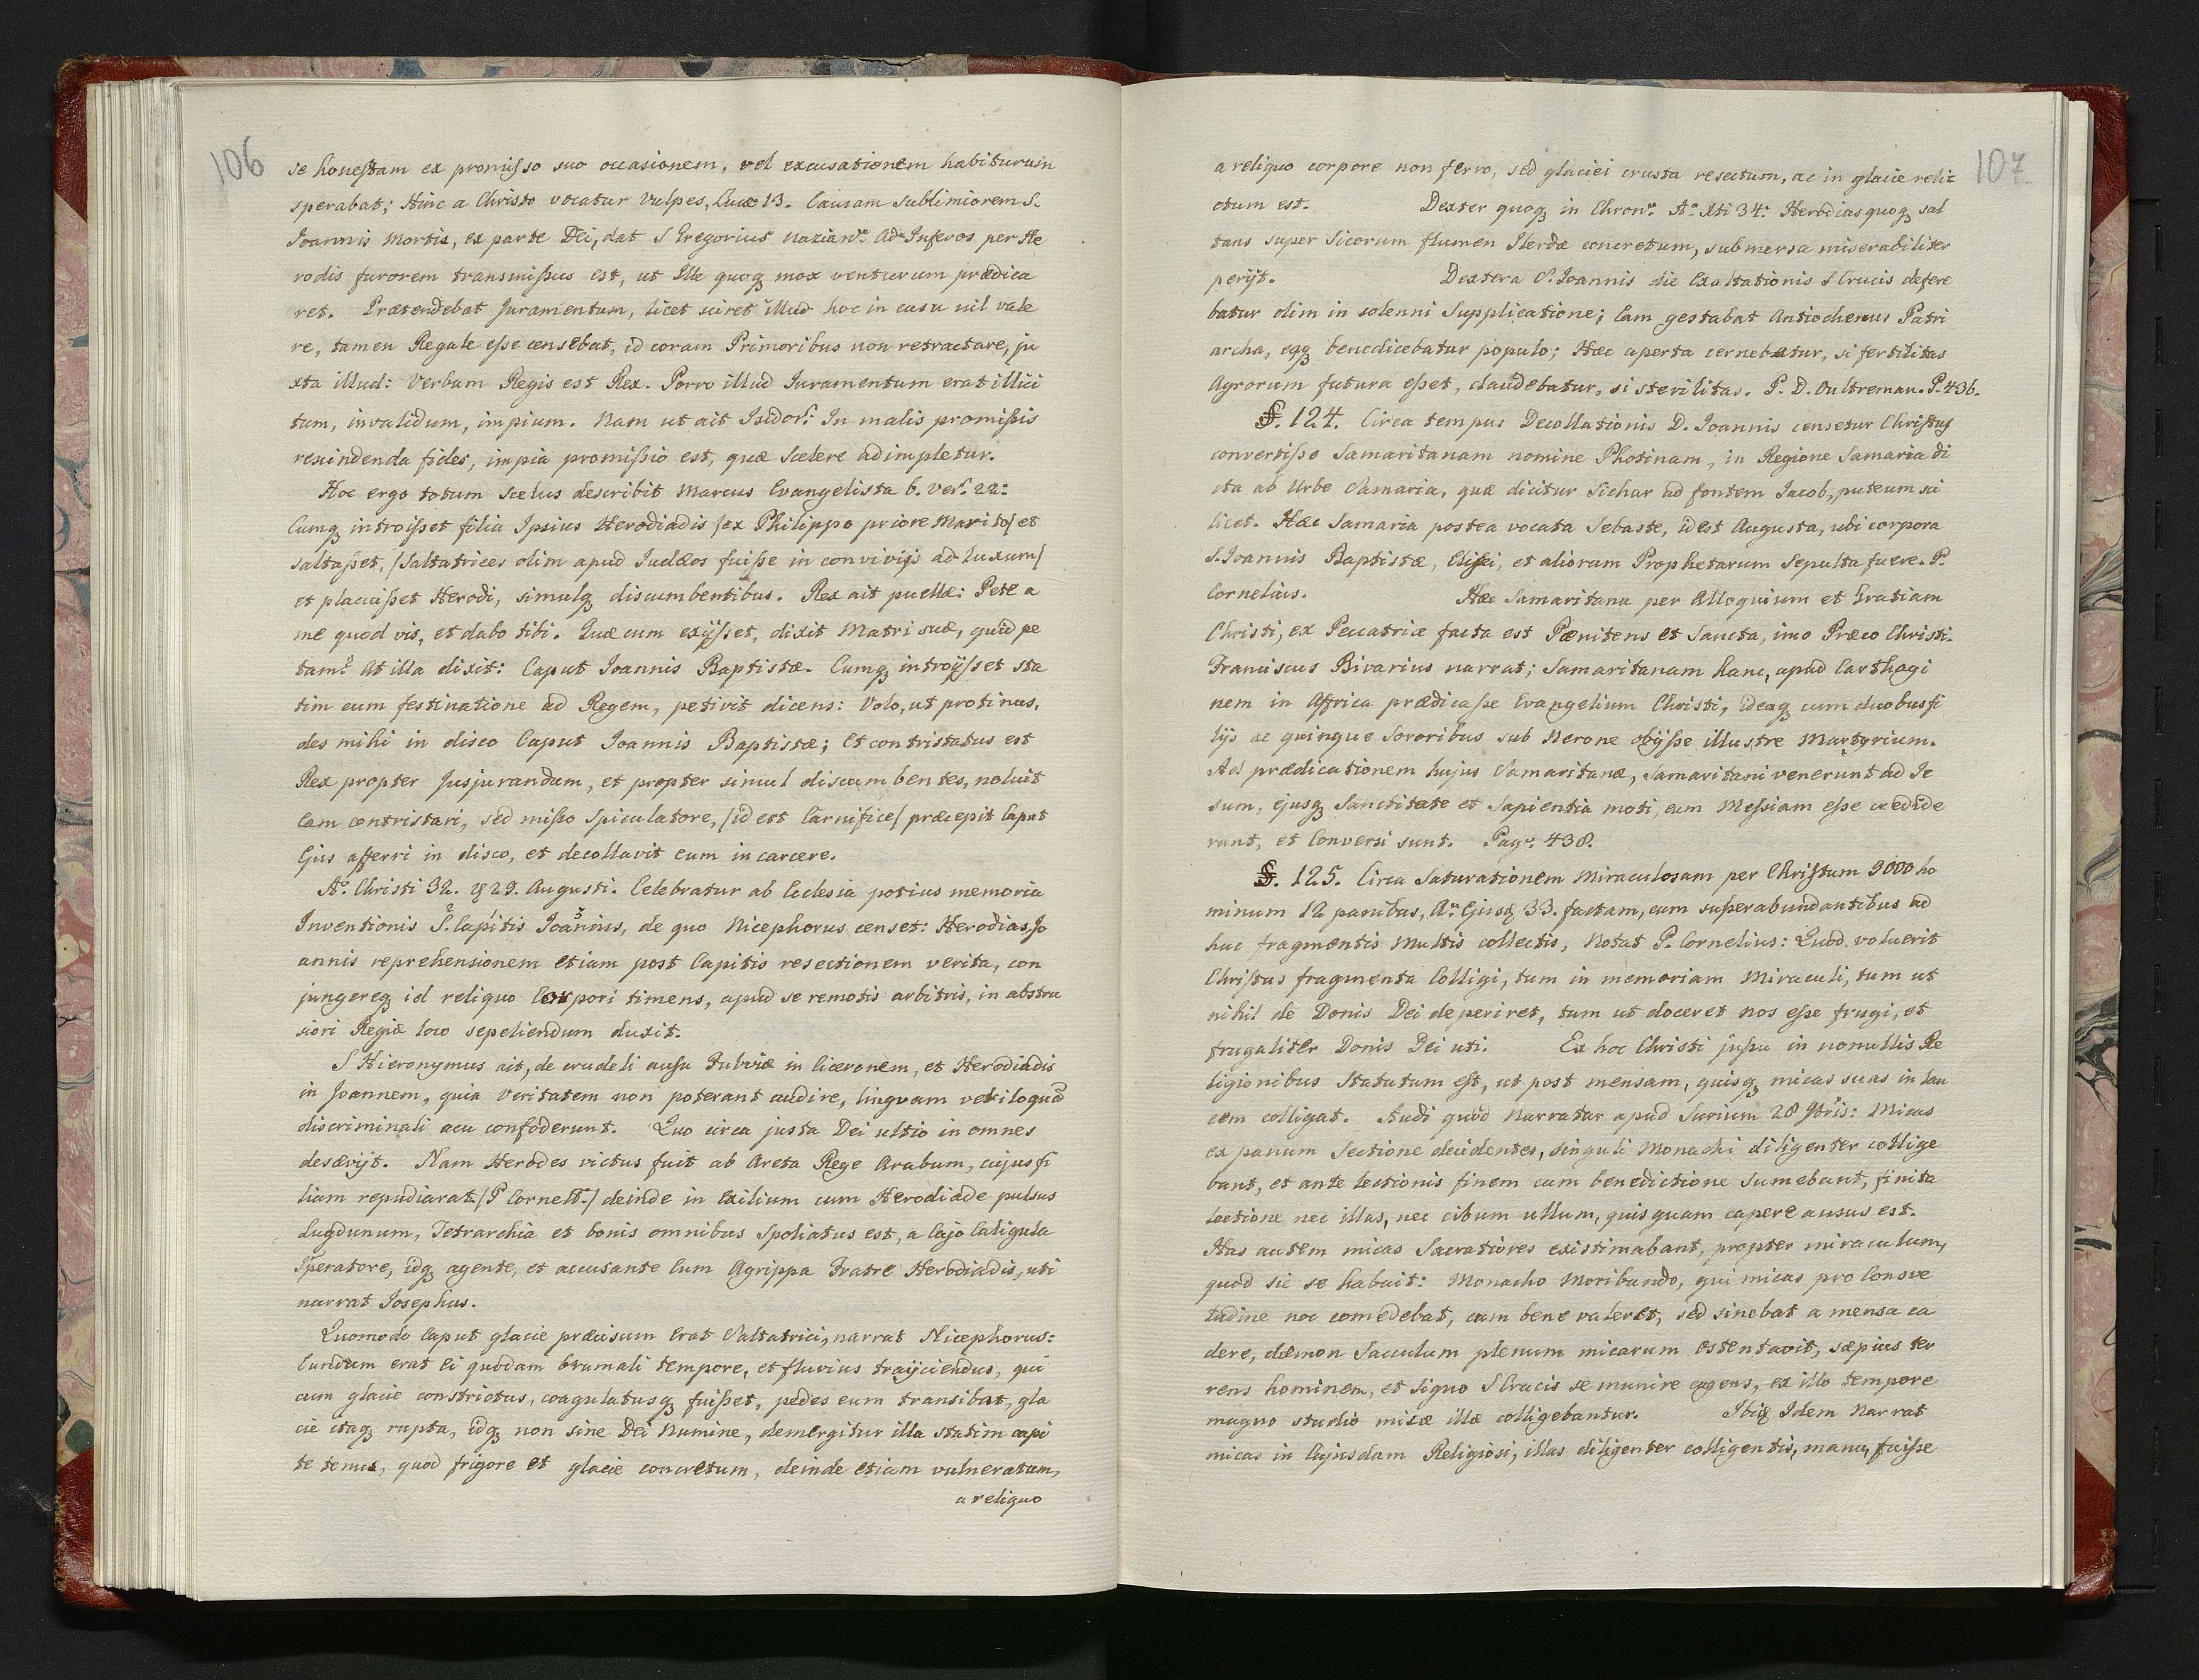 106
se honestam ex promisso suo occasionem, vel excusationem habiturum
sperabat; Hinc a Christo vocatur Vulpes, Lucæ 13. Causam sublimiorem S.
Joannis Mortis, ex parte Dei, dat S Gregorius Nazian: Ad Inferos per He
rodis furorem transmissus est, ut Ille quoq3 mox venturum prædica
ret. Prætendebat Juramentum, licet sciret illud hoc in casu nil vale
re, tamen Regale esse censebat, id coram Primoribus non retractare, ju
xta illud: Verbum Regis est Rex. Porro illud Juramentum erat illici
tum, invalidum, impium. Nam ut ait Isidor: In malis promissis
rescindenda fides, impia promissio est, quæ Scelere adimpletur.
Hoc ergo totum Scelus describit Marcus Evangelista 6. ver: 22:
Cumq3 introisset filia Ipsius Herodiadis /ex Philippo priore Marito/ et
saltasset, /Saltatrices olim apud Judæos fuisse in convivijs ad Luxum/
et placuisset Herodi, simulq3 discumbentibus. Rex ait puellæ: Pete a
me quod vis, et dabo tibi. Quæ cum exijsset, dixit Matri suæ, quid pe
tam? At illa dixit: Caput Joannis Baptistæ. Cumq3 introijsset sta
tim cum festinatione ad Regem, petivit dicens: Volo, ut protinus,
des mihi in disco Caput Joannis Baptistæ; Et contristatus est
Rex propter Jusjurandum, et propter simul discumbentes, noluit
Eam contristari, sed misso Spiculatore, /id est Carnifice/ præcepit Caput
Ejus afferri in disco, et decollavit eum in carcere.
Aº. Christi 32. 29. Augusti. Celebratur ab Ecclesia potius memoria
Inventionis S. Capitis Joannis, de quo Nicephorus censet: Herodias Jo
annis reprehensionem etiam post Capitis resectionem verita, con
jungereq3 id reliquo Corpori timens, apud se remotis arbitris, in abstru
siori Regiæ loco sepeliendum duxit.
S Hieronymus ait, de crudeli ausu Fulviæ in Ciceronem, et Herodiadis
in Joannem, quia Veritatem non poterant audire, linguam veriloquã
discriminali acu confoderunt. Quo circa justa Dei ultio in omnes
desævijt. Nam Herodes victus fuit ab Areta Rege Arabum, cujus fi
liam repudiarat /P Cornel:/ deinde in Exilium cum Herodiade pulsus
Lugdunum, Tetrarchia et bonis omnibus Spoliatus est, a Cajo Caligula
Iperatore, idq3 agente, et accusante Eum Agrippa Fratre Herodiadis, uti
narrat Josephus.
Quomodo Caput glacie præcisum Erat Saltatrici, narrat Nicephorus:
Eundum erat Ei quodam brumali tempore, et fluvius traijciendus, qui
cum glacie constrictus, coagulatusq3 fuisset, pedes eum transibat, gla
cie itaq3 rupta, idq3 non sine Dei Numine, demergitur illa statim capi
te tenus, quod frigore et glacie concretum, deinde etiam vulneratum,
a reliquo
107
a reliquo corpore non ferro, sed glaciei crusta resectum, ac in glacie reli=
ctum est. Dexter quoq3 in Chron: Aº Xti 34: Herodias quoq3 sal
tans super Sicorum flumen Ilerdæ concretum, submersa miserabiliter
perijt. Dextera S. Joannis die Exaltationis S Crucis defere
batur olim in solenni Supplicatione; Eam gestabat Antiochenus Patri
archa, eaq3 benedicebatur populo; Hæc aperta cernebatur, si fertilitas
Agrorum futura esset, claudebatur, si sterilitas. P. D. Oultreman. P. 436.
§. 124. Circa tempus Decollationis D. Joannis censetur Christus
convertisse Samaritanam nomine Photinam, in Regione Samaria di
cta ab Urbe Samaria, quæ dicitur Sichar ad fontem Jacob, puteum sci
licet. Hæc Samaria postea vocata Sebaste, id est Augusta, ubi corpora
S. Joannis Baptistæ, Elisei, et aliorum Prophetarum Sepulta fuere. P.
Cornelius. Hæc Samaritana per Alloquium et Gratiam
Christi, ex Peccatrice facta est Pœnitens et Sancta, imo Præco Christi.
Franciscus Bivarius narrat; Samaritanam hanc, apud Carthagi
nem in Affrica prædicasse Evangelium Christi, ideaq3 cum duobus fi
lijs ac quinque Sororibus sub Nerone obijsse illustre Martyrium.
Ad prædicationem hujus Samaritanæ, Samaritani venerunt ad Je
sum, ejusq3 Sanctitate et Sapientia moti, eum Messiam esse credide
runt, et Conversi sunt. Pag: 438.
§. 125. Circa Saturationem Miraculosam per Christum 9000 ho
minum 12 panibus, Aº. Ejusq3 33. factam, cum superabundantibus ad
huc fragmentis multis collectis, Notat P. Cornelius: Quod voluerit
Christus fragmenta Colligi, tum in memoriam Miraculi, tum ut
nihil de Donis Dei deperiret, tum ut doceret nos esse frugi, et
frugaliter Donis Dei uti. Ex hoc Christi jussu in nonullis Re
ligionibus Statutum est, ut post mensam, quisq3 micas suas in lan
cem colligat. Audi quod narratur apud Surium 28 9bris: Micas
ex panum Sectione decidentes, singuli Monachi diligenter collige
bant, et ante lectionis finem cum benedictione Sumebant, finita
lectione nec illas, nec cibum ullum, quisquam capere ausus est.
Has autem micas Sacratiores existimabant, propter miraculum,
quod sic se habuit: Monacho Moribundo, qui micas pro Consve
tudine non comedebat, cum bene valeret, sed sinebat a mensa ca
dere, dæmon Sacculum plenum micarum Ostentavit, sæpius ter
rens hominem, et Signo S Crucis se munire cogens, ex illo tempore
magno studio micæ illæ colligebantur. Ibiq3 Idem Narrat
micas in Cujusdam Religiosi, illas diligenter colligentis, manu, fuisse